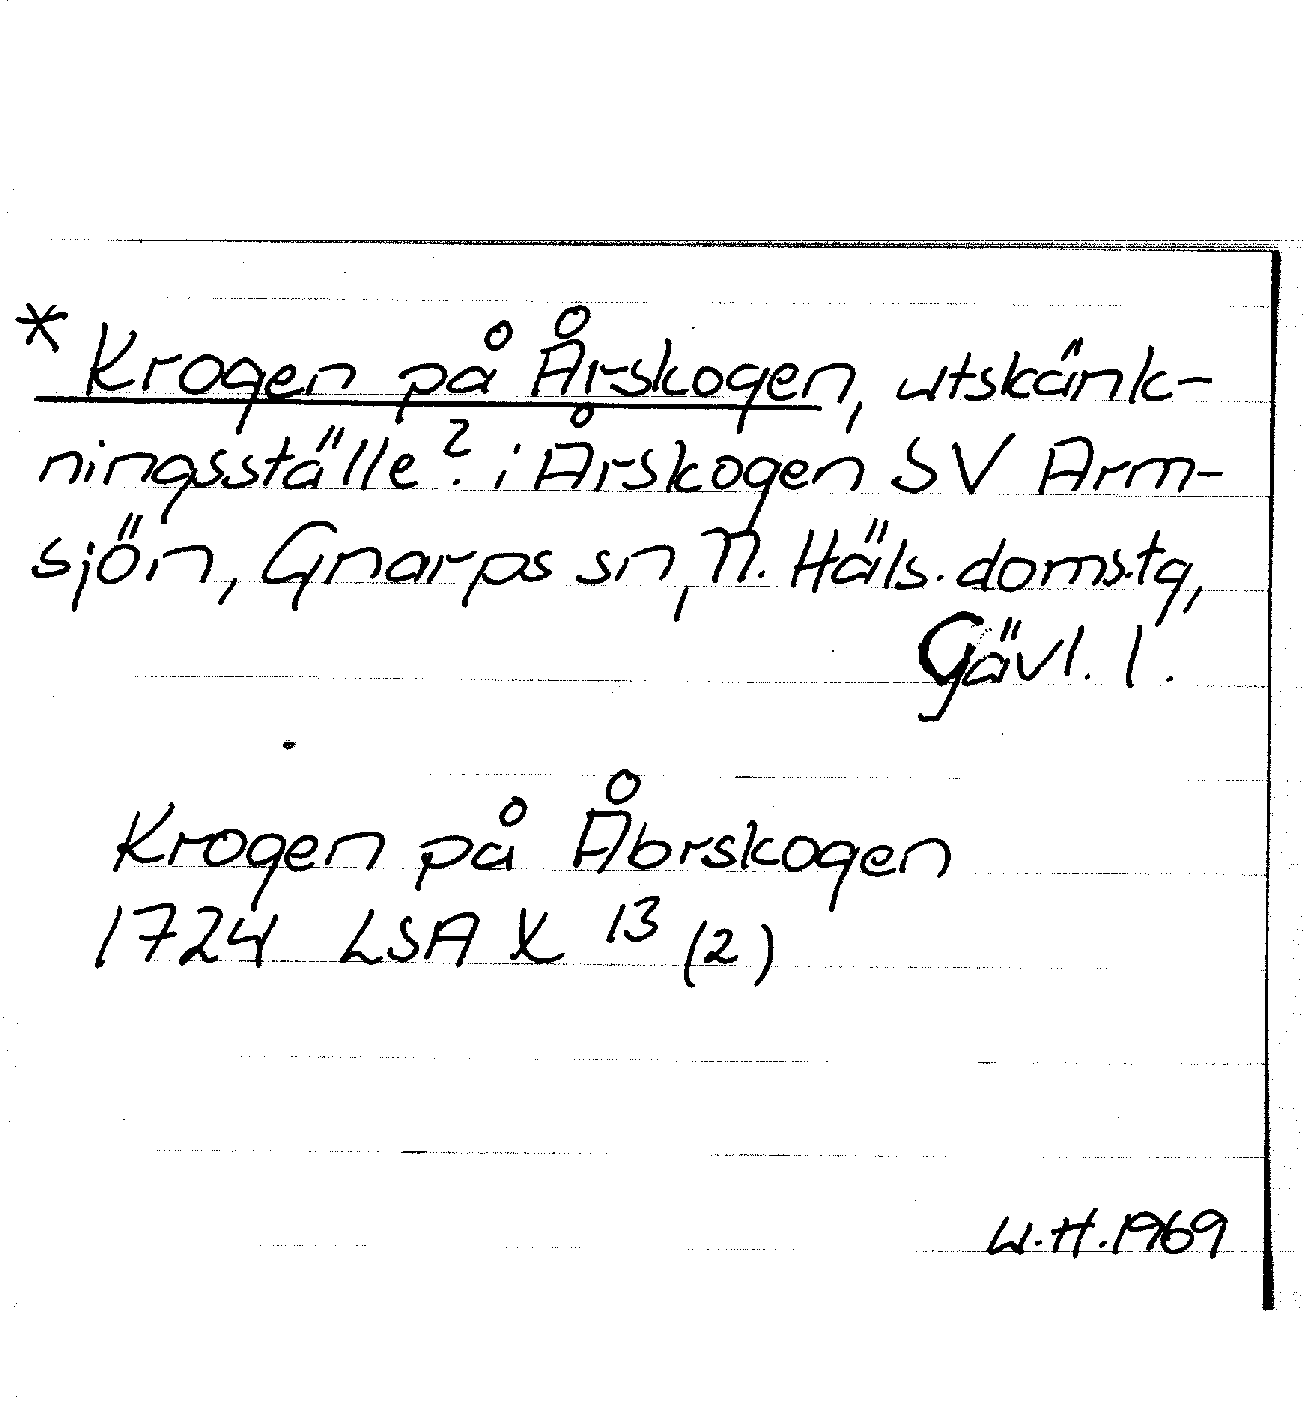 * Krogen på Årskogen, utskänk-
ningsställe? i Årskogen SV Arm-
sjön, Gnarps sn, N. Häls. doms.tg,
Gävl. l.
Krogen på Åbrskogen
1724 LSA X 13 (2)
W.H. 1969